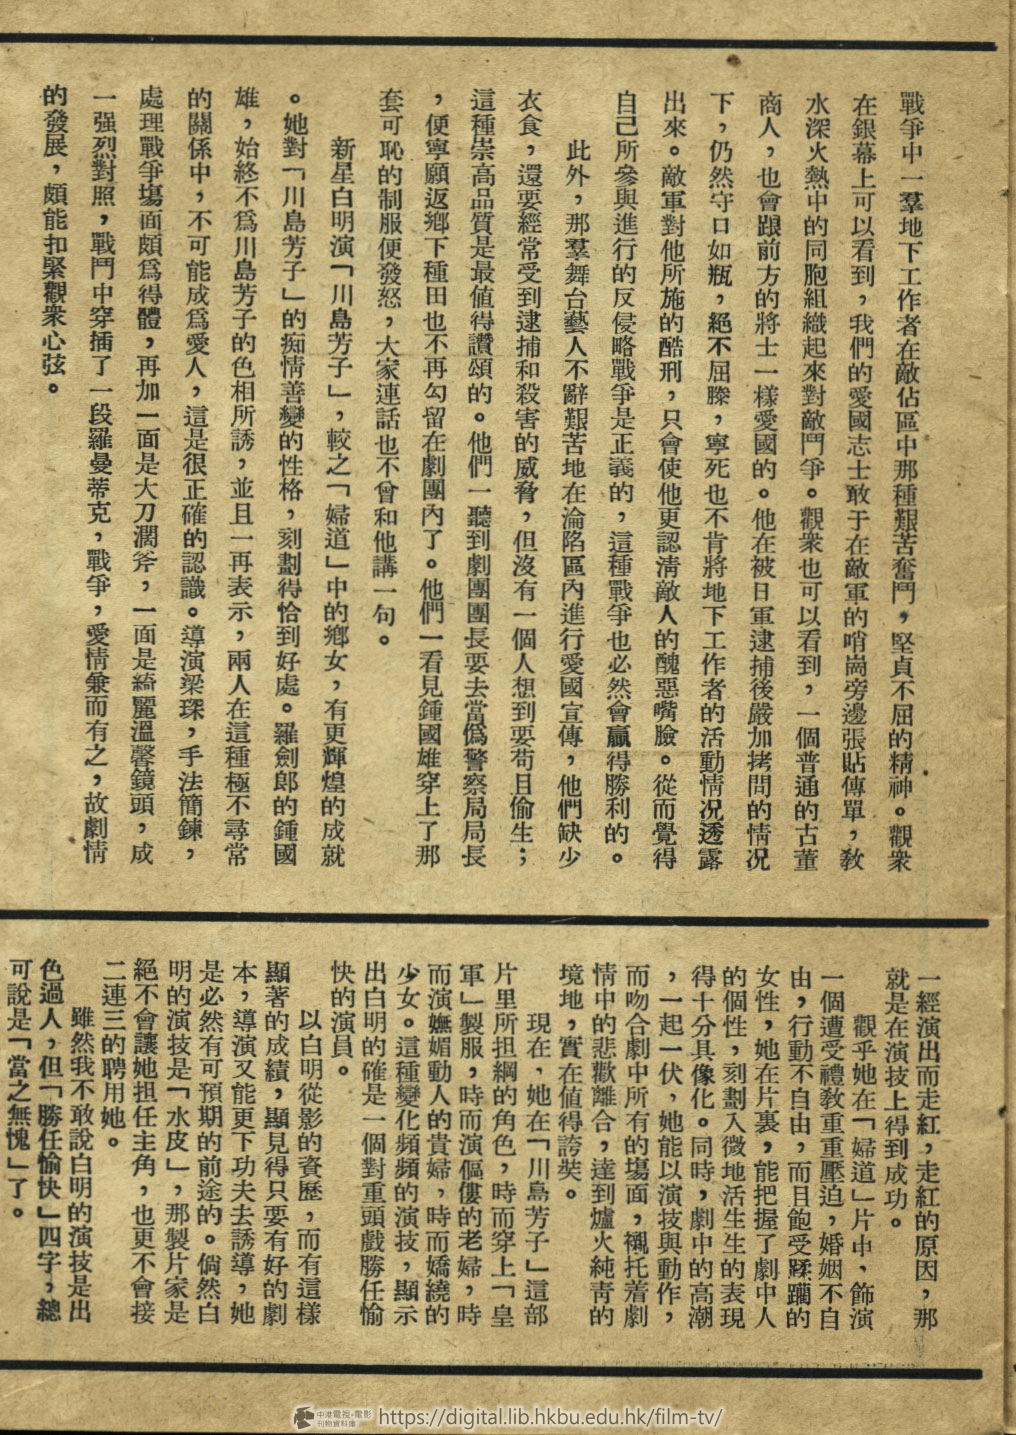 戰爭中一羣地下工作者在敵佔區中那種艱苦奮鬥，堅貞不屈的精神。觀衆
在銀幕上可以看到，我們的愛國志士敢于在敵軍的哨崗旁邊張貼傳單，教
水深火熱中的同胞組織起來對敵鬥爭。觀衆也可以看到，一個普通的古董
商人，也會跟前方的將士一樣愛國的。他在被日軍逮捕後嚴加拷問的情况
下，仍然守口如瓶，絕不屈滕，寧死也不肯將地下工作者的活動情况透露
出來。敵軍對他所施的酷刑，只會使他更認清敵人的醜惡嘴臉。從而覺得
自己所參與進行的反侵略戰爭是正義的，這種戰爭也必然會贏得勝利的。
此外，那羣舞台藝人不辭艱苦地在淪陷區內進行愛國宣傳，他們缺少
衣食，還要經常受到逮捕和殺害的威脅，但沒有一個人想到要苟且偷生；
這種崇高品質是最值得讚頌的。他們一聽到劇團團長要去當僞警察局局長
，便寧願返鄉下種田也不再勾留在劇團內了。他們一看見鍾國雄穿上了那
套可恥的制服便發怒，大家連話也不曾和他講一句。
新星白明演「川島芳子」，較之「婦道」中的鄉女，有更輝煌的成就
。她對「川島芳子」的痴情善變的性格，刻劃得恰到好處。羅劍郎的鍾國
雄，始終不爲川島芳子的色相所誘，並且一再表示，兩人在這種極不尋常
的關係中，不可能成爲愛人，這是很正確的認識。導演梁琛，手法簡鍊，
處理戰爭塲面頗爲得體，再加一面是大刀濶斧，一面是綺麗溫馨鏡頭，成
一强烈對照，戰鬥中穿插了一段羅曼蒂克，戰爭，愛情兼而有之，故劇情
的發展，頗能扣緊觀衆心弦。
一經演出而走紅，走紅的原因，那
就是在演技上得到成功。
觀乎她在「婦道」片中、飾演
一個遭受禮教重重壓迫，婚姻不自
由，行動不自由，而且飽受蹂躪的
女性，她在片裏，能把握了劇中人
的個性，刻劃入微地活生生的表現
得十分具像化。同時，劇中的高潮
，一起一伏，她能以演技與動作，
而吻合劇中所有的塲面，襯托着劇
情中的悲歡離合，達到爐火純靑的
境地，實在值得誇奘。
現在，她在「川島芳子」這部
片里所担綱的角色，時而穿上「皇
軍」製服，時而演傴僂的老婦，時
而演嫵媚動人的貴婦，時而嬌繞的
少女。這種變化頻頻的演技，顯示
出白明的確是一個對重頭戲勝任愉
快的演員。
以白明從影的資歷，而有這樣
顯著的成績，顯見得只要有好的劇
本，導演又能更下功夫去誘導，她
是必然有可預期的前途的。倘然白
明的演技是「水皮」，那製片家是
絕不會讓她担任主角，也更不會接
二連三的聘用她。
雖然我不敢說白明的演技是出
色過人，但「勝任愉快」四字，總
可說是「當之無愧」了。
中港電視·電影
刊物資料庫
https://digital.lib.hkbu.edu.hk/film-tv/